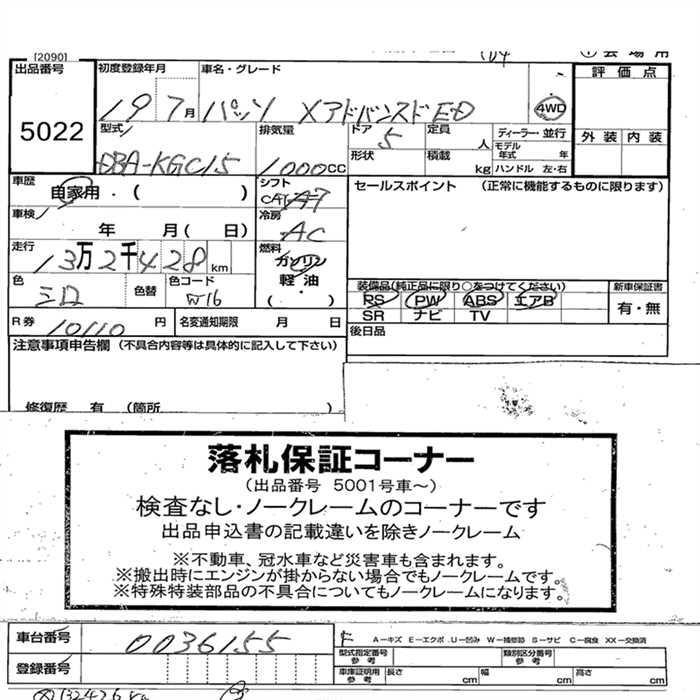 [2090]
① 会場用
出品番号 5022
初度登録年月 19 7月
車名・グレード パッソ Xアドバンスド ED 4WD
評価点
外装 内装
型式 DBA-KGC15
排気量 1000cc
ドア 5
形状
定員 人
積載 kg
ディーラー・並行
モデル年式 年
ハンドル 左・右
車歴 自家用・( )
シフト CAT A7
セールスポイント (正常に機能するものに限ります)
車検 年 月( 日)
冷房 AC
走行 13万2千428km
燃料 ガソリン 軽油 ( ・ )
色 シロ
色替
色コード W16
装備品(純正品に限り○をつけてください)
PS PW ABS エアB
SR ナビ TV
新車保証書 有・無
R券 10110円
名変通知期限 月 日
後日品
注意事項申告欄 (不具合内容等は具体的に記入して下さい)
修復歴 有 (箇所 )
落札保証コーナー
(出品番号 5001号車〜)
検査なし・ノークレームのコーナーです
出品申込書の記載違いを除きノークレーム
※不動車、冠水車など災害車も含まれます。
※搬出時にエンジンが掛からない場合でもノークレームです。
※特殊特装部品の不具合についてもノークレームになります。
車台番号 0036155
F A−キズ E−エクボ U−凹み W−補修跡 S−サビ C−腐食 XX−交換済
型式指定番号 参考
類別区分番号 参考
登録番号
車庫証明用 参考 長さ cm 幅 cm 高さ cm
132426km